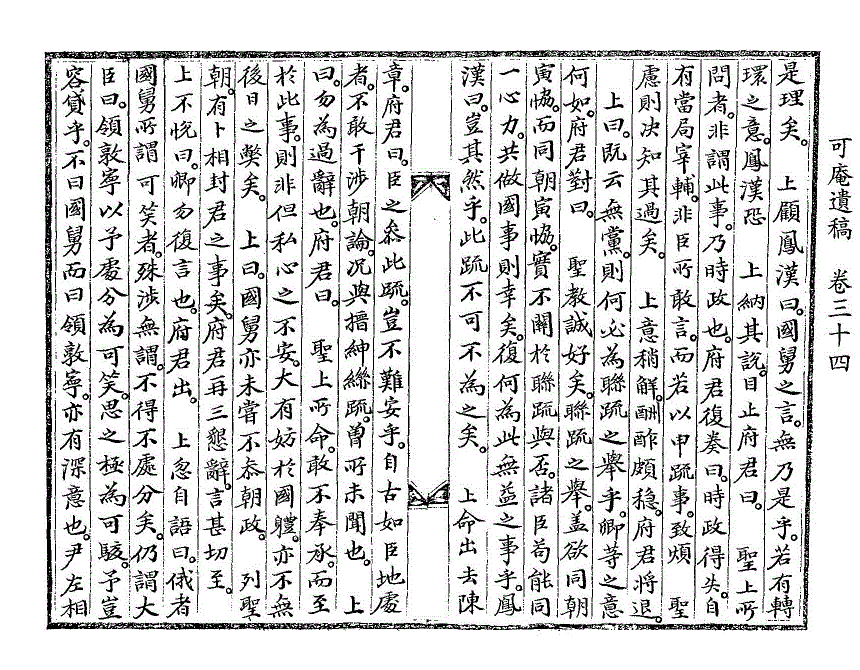 可庵遺稿　卷三十四
是理矣。　上顧鳳漢曰。國舅之言。無乃是乎。若有轉
環之意。鳳漢恐　上納其說。目止府君曰。　聖上所
問者。非謂此事。乃時政也。府君復奏曰。時政得失。自
有當局宰輔。非臣所敢言。而若以申䟽事。致煩　聖
慮則决知其過矣。　上意稍解。酬酢頗穩。府君將退。
上曰。旣云無黨。則何必為聯䟽之舉乎。卿等之意
何如。府君對曰。　聖教誠好矣。聯䟽之舉。盖欲同朝
寅恊。而同朝寅恊。實不關於聯䟽與否。諸臣苟能同
一心力。共做國事則幸矣。復何為此無益之事乎。鳳
漢曰。豈其然乎。此䟽不可不為之矣。　上命出去陳
章。府君曰。臣之叅此䟽。豈不難安乎。自古如臣地處
者。不敢干涉朝論。况與搢紳聯䟽。曾所未聞也。　上
曰。勿為過辭也。府君曰。　聖上所命。敢不奉承。而至
於此事。則非但私心之不安。大有妨於國軆。亦不無
後日之獘矣。　上曰。國舅亦未嘗不叅朝政。　列聖
朝。有卜相封君之事矣。府君再三懇辭。言甚切至。
上不悅曰。卿勿復言也。府君出。　上忽自語曰。俄者
國舅所謂可笑者。殊涉無謂。不得不處分矣。仍謂大
臣曰。領敦寧以予處分為可笑。思之極為可駭。予豈
容貸乎。不曰國舅而曰領敦寧。亦有深意也。尹左相